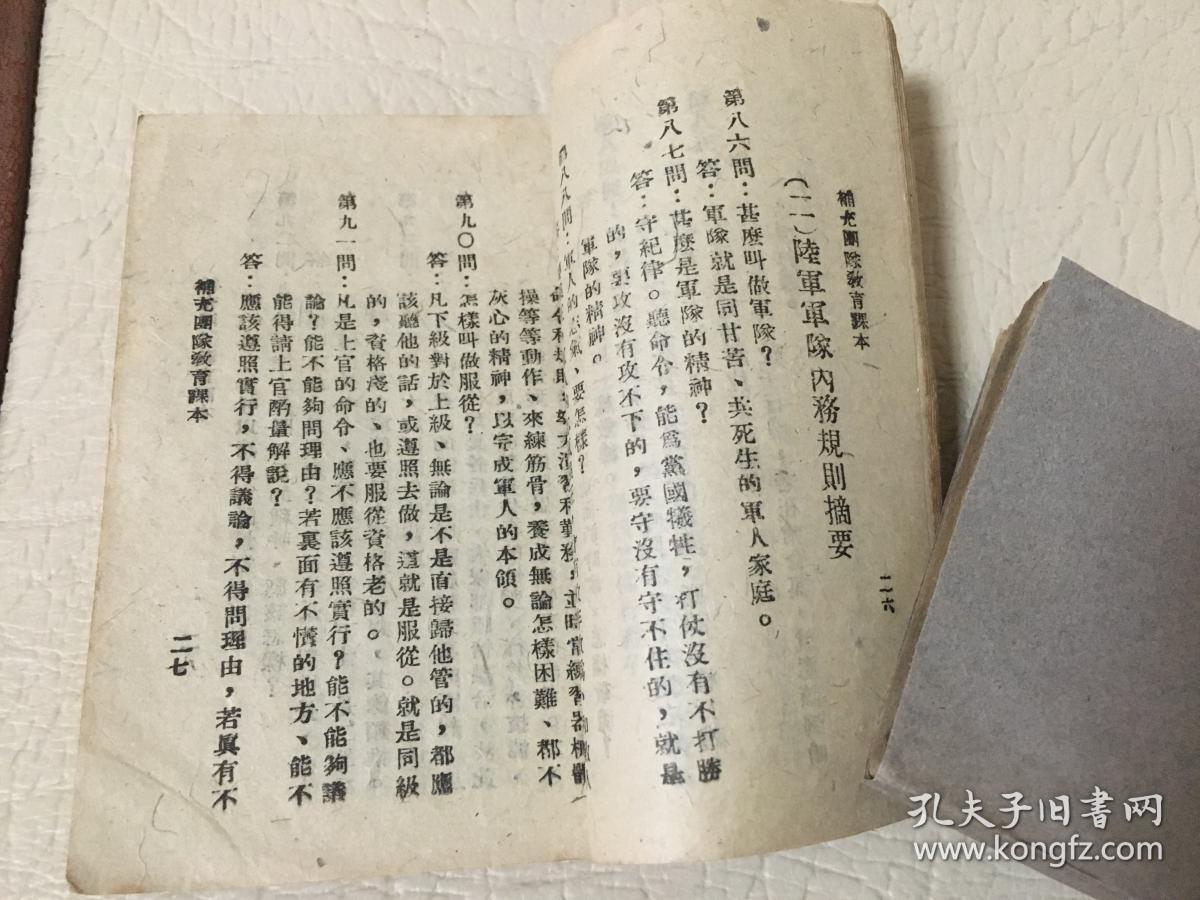 補充團隊教育課本
二六
(二)陸軍軍隊內務規則摘要
第八六問:甚麼叫做軍隊?
答:軍隊就是同甘苦、共死生的軍人家庭。
第八七問:甚麼是軍隊的精神?
答:守紀律。聽命令,能爲黨國犧牲,打仗沒有不打勝
的,要攻沒有攻不下的,要守沒有守不住的,就是
軍隊的精神。
第八八問:軍人的志氣、要怎樣?
演習和勤務,並時常練習器械體
操等等動作、來練筋骨,養成無論怎樣困難、都不
灰心的精神,以完成軍人的本領。
第九〇問:怎樣叫做服從?
答:凡下級對於上級、無論是不是直接歸他管的,都應
該聽他的話,或遵照去做,這就是服從。就是同級
的,資格淺的、也要服從資格老的。
第九一問:凡是上官的命令、應不應該遵照實行?能不能夠議
論?能不能夠問理由?若裏面有不懂的地方、能不
能得請上官酌量解說?
答:應該遵照實行,不得議論,不得問理由,若眞有不
補充團隊教育課本
二七
孔夫子旧书网
www.kongfz.com